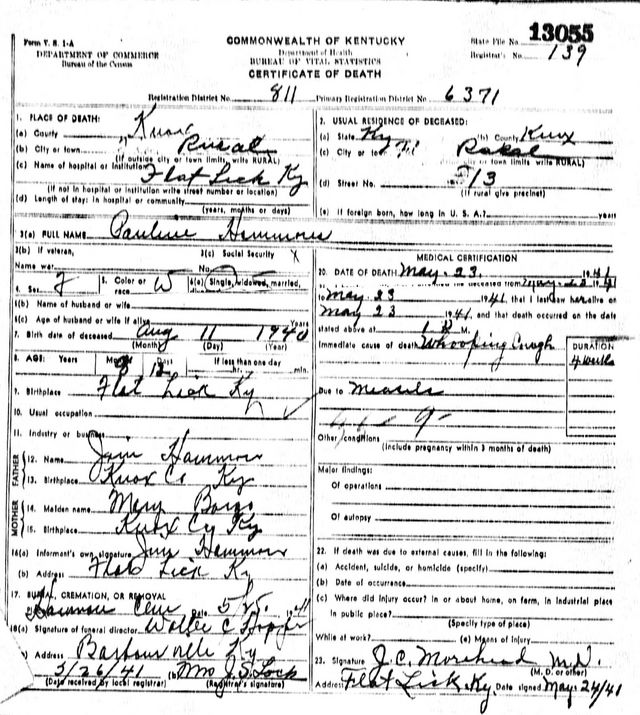 Form V. S. 1-A
DEPARTMENT OF COMMERCE
Bureau of the Census
COMMONWEALTH OF KENTUCKY
Department of Health
BUREAU OF VITAL STATISTICS
CERTIFICATE OF DEATH
State File No. 13055
Registrar's No. 139
Registration District No. 811 Primary Registration District No. 6371
1. PLACE OF DEATH:
(a) County Knox
(b) City or town Rural
(If outside city or town limits, write RURAL)
(c) Name of hospital or institution Flat Lick Ky
(If not in hospital or institution write street number or location)
(d) Length of stay: In hospital or community
(years, months or days)
2. USUAL RESIDENCE OF DECEASED:
(a) State Ky (b) County Knox
(c) City or town
city or town limits write RURAL)
(d) Street No. 13
(If rural give precinct)
(e) If foreign born, how long in U. S. A.? years
3(a) FULL NAME Pauline Hammons
3(b) If veteran, 3(c) Social Security
Name war No.
4. Sex F 5. Color or race W 6(a) Single, widowed, married,
6(b) Name of husband or wife
6(c) Age of husband or wife if alive Years
7. Birth date of deceased Aug 11 1940
(Month) (Day) (Year)
8. AGE: Years Months Days If less than one day
12 hr. min.
9. Birthplace Flat Lick Ky
10. Usual occupation
11. Industry or business
FATHER
12. Name Jim Hammons
13. Birthplace Knox Co Ky
MOTHER
14. Maiden name Mary
15. Birthplace Knox Cy Ky
16(a) Informant's own signature Jim Hammons
(b) Address Flat Lick Ky
17. BURIAL, CREMATION, OR REMOVAL
Hammons Cem Date 5 41
18(a) Signature of funeral director C
Address Barbourville Ky
5/26/41 (b) Mrs J. S. Lock
(Date received by local registrar) (Registrar's signature)
MEDICAL CERTIFICATION
20. DATE OF DEATH May 23. 1941
the deceased from May 1941
to May 23 1941, that I last saw her alive on
May 23 1941, and that death occurred on the date
stated above at M.
Immediate cause of death Whooping Cough
DURATION
4 weeks
Due to Measels
Other conditions
(Include pregnancy within 3 months of death)
Major findings:
Of operations
Of autopsy
22. If death was due to external causes, fill in the following:
(a) Accident, suicide, or homicide (specify)
(b) Date of occurrence
(c) Where did injury occur? In or about home, on farm, in industrial place
in public place?
(Specify type of place)
While at work? (e) Means of injury
23. Signature J. C. Morehead M.D.
(M. D. or other)
Address Flat Lick, Ky. Date signed May 24/41